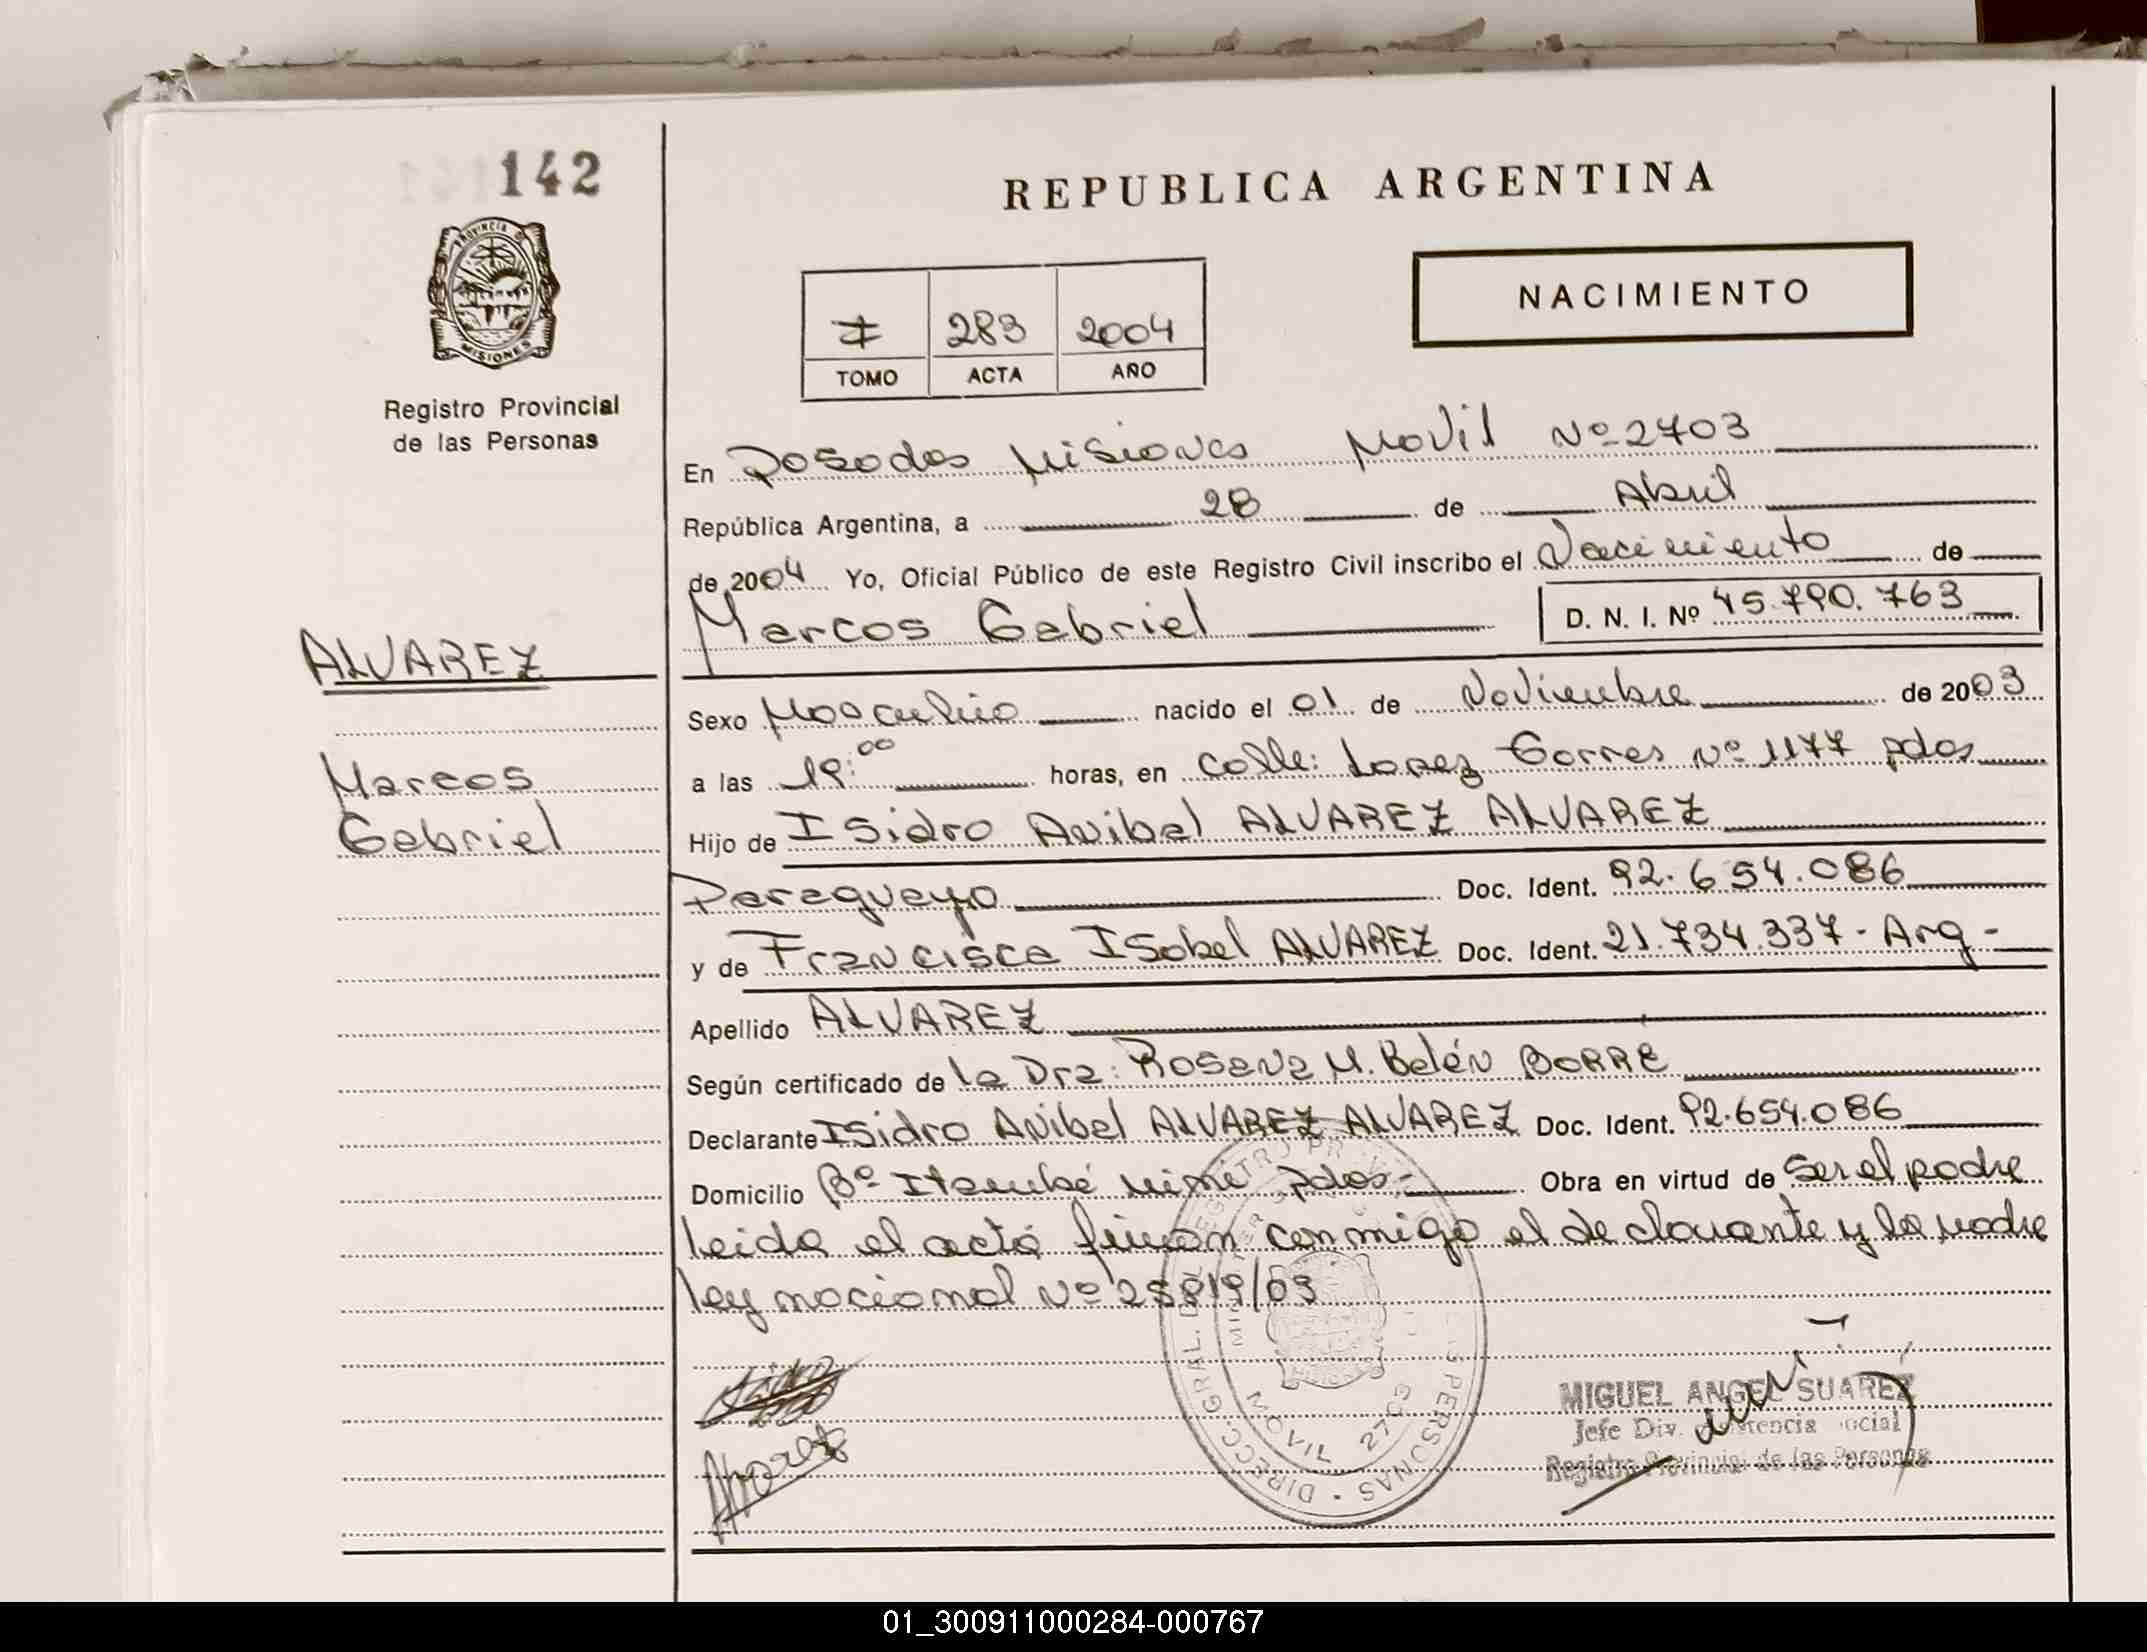 142
PROVINCIA DE
MISIONES
Registro Provincial
de las Personas
REPUBLICA ARGENTINA
NACIMIENTO
283 2004
TOMO ACTA AÑO
En Posadas Misiones Movil Nº 2703
República Argentina, a 28 de Abril
de 2004 Yo, Oficial Público de este Registro Civil inscribo el Nacimiento de
Marcos Gabriel D. N. I. Nº 45.790.763
ALVAREZ
Marcos
Gabriel
Sexo Masculino nacido el 01 de Noviembre de 2003
a las 19:00 horas, en Calle: Lopez Torres Nº 1177 pdas
Hijo de Isidro Anibal ALVAREZ ALVAREZ
Paraguayo Doc. Ident. 92.654.086
y de Francisca Isabel ALVAREZ Doc. Ident. 21.734.337 - Arg -
Apellido ALVAREZ
Según certificado de la Dra: Rosana M. Belén BORRE
Declarante Isidro Anibal ALVAREZ ALVAREZ Doc. Ident. 92.654.086
Domicilio Bº Itaembé mimi pdas - Obra en virtud de Ser el padre
leida el acta firman conmigo el declarante y la madre
ley nacional Nº 25819/03
DIRECC. GRAL. DEL REGISTRO PROVINCIAL DE LAS PERSONAS
MOVIL 2703
Alvarez
MIGUEL ANGEL SUAREZ
Jefe Div. Asistencia Social
Registro Provincial de las Personas
01_300911000284-000767